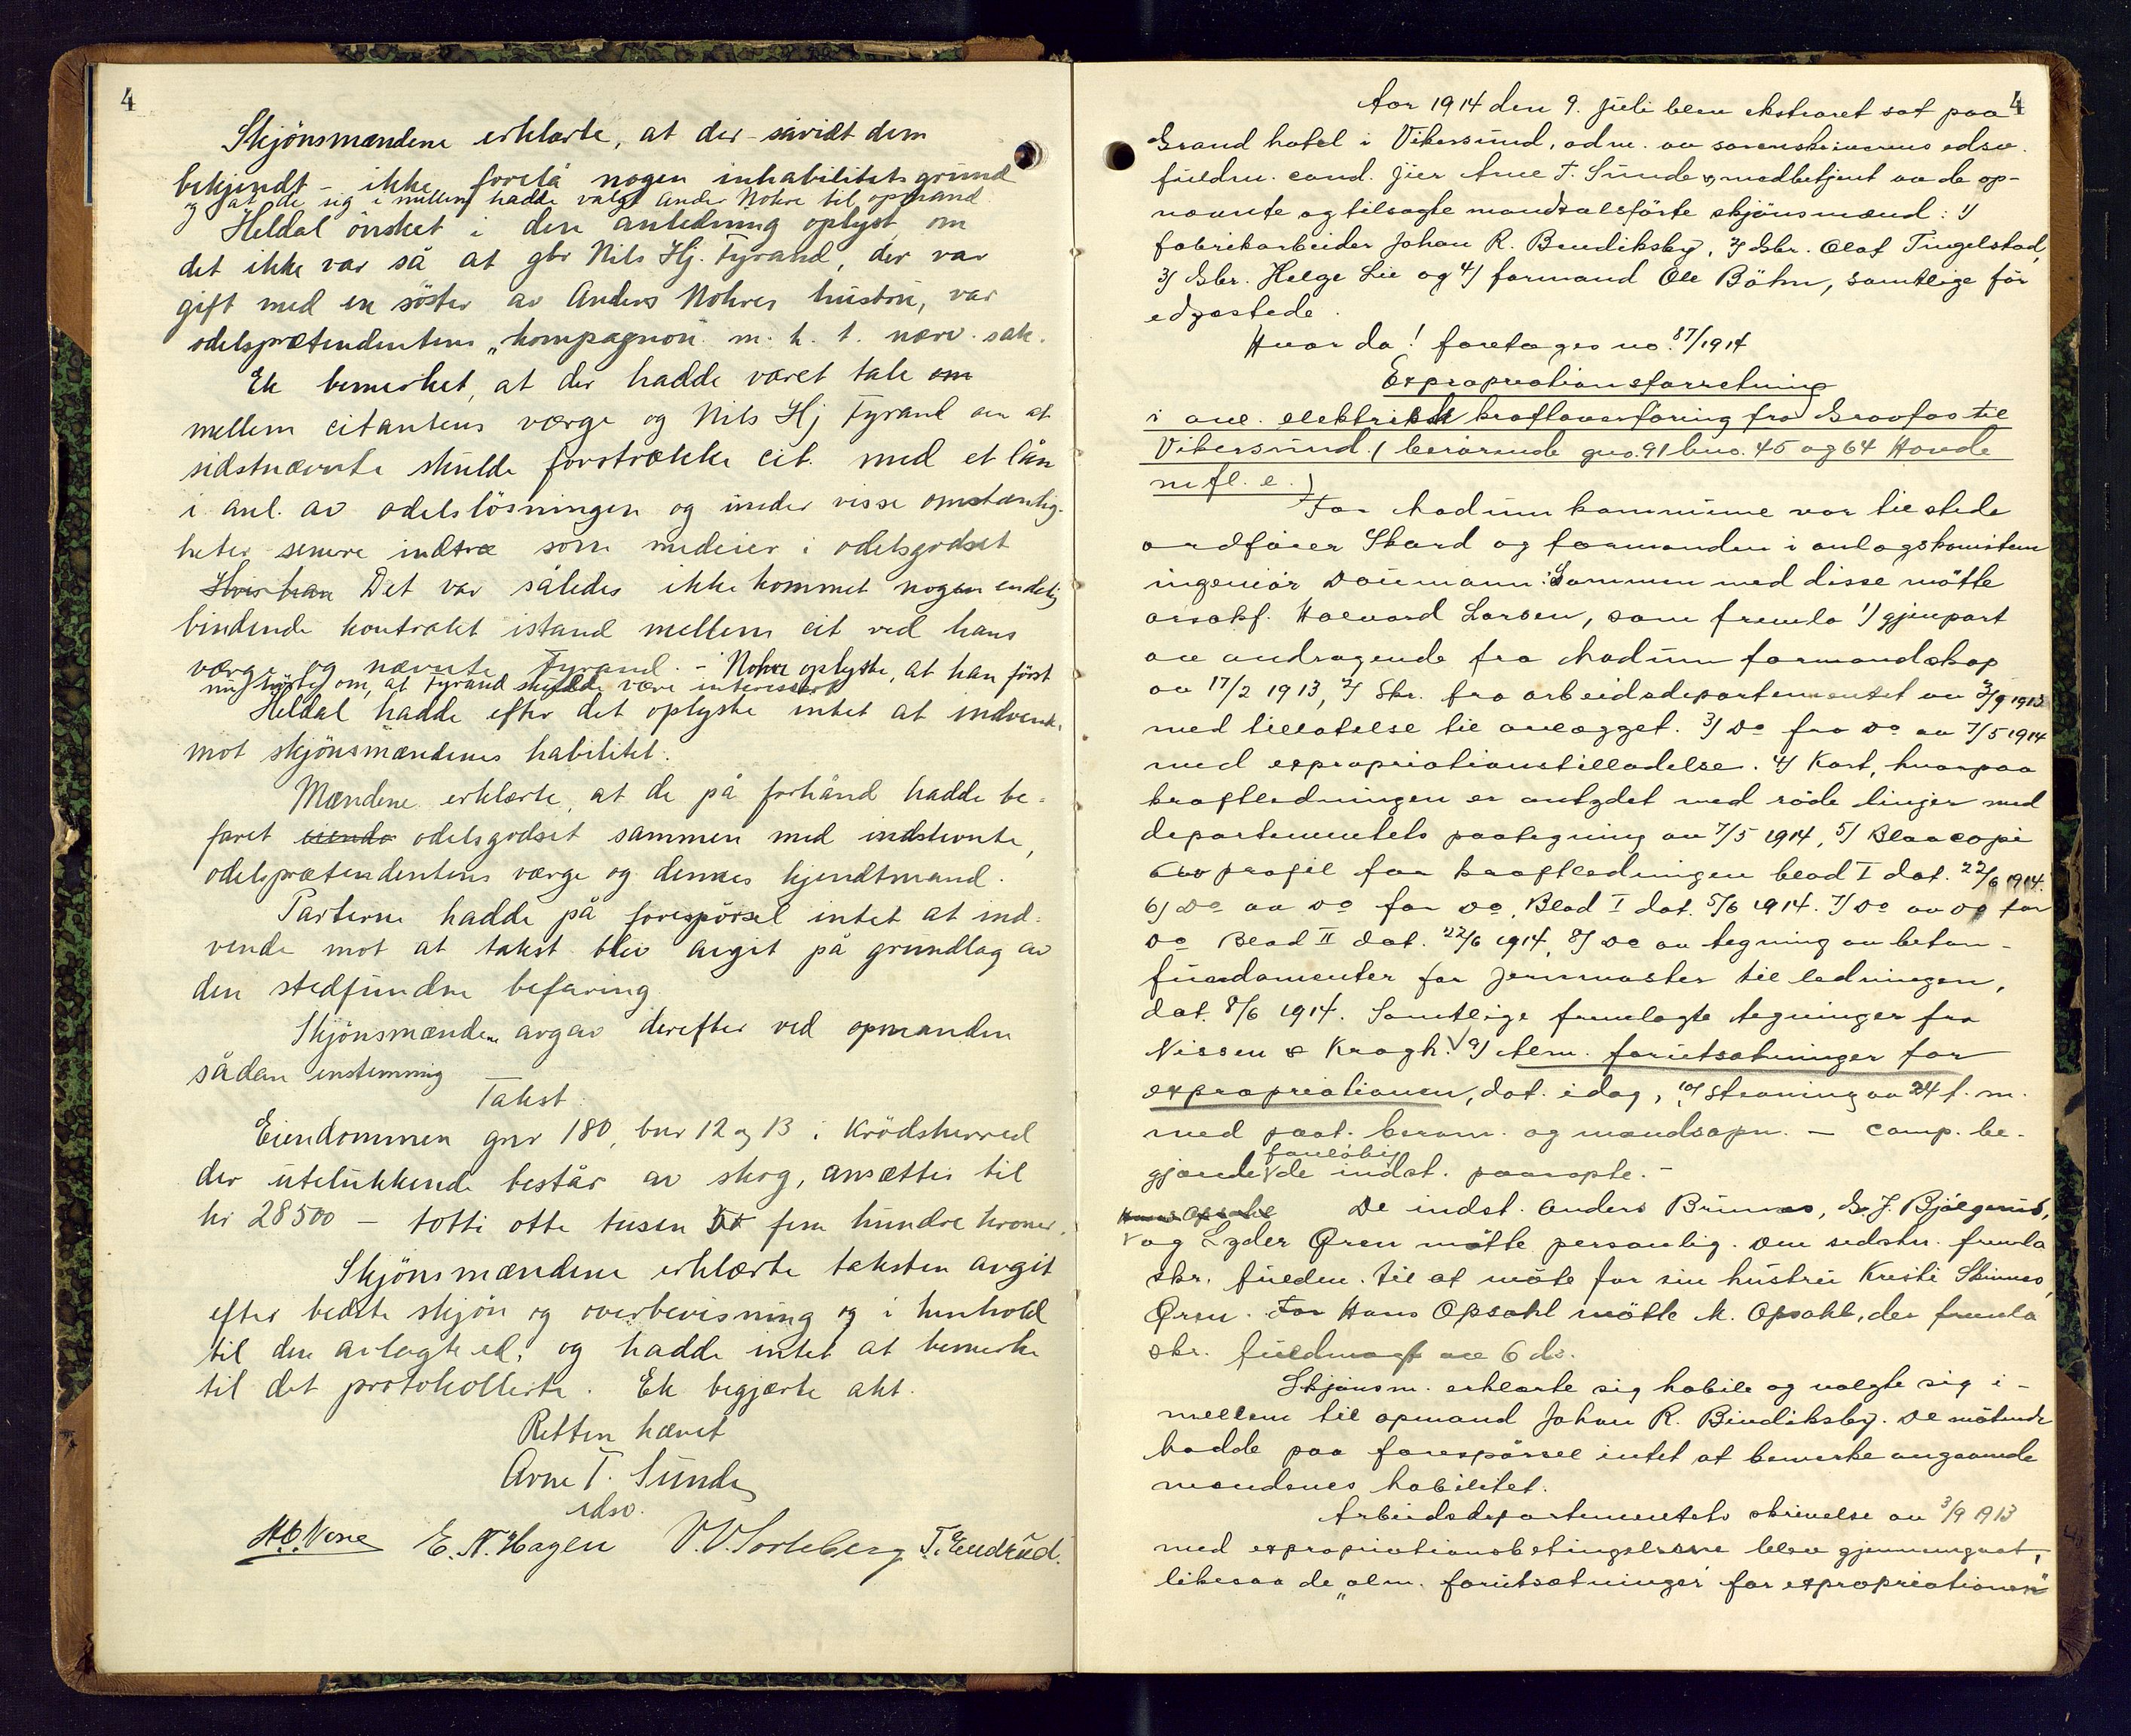 4
Skjönsmændene erklærte, at der - såvidt dem
bekjendt - ikke forelå nogen inhabilitetsgrund
og at de sig i mellem hadde valgt Anders Nohre til opmand.
Heldal önsket i den anledning oplyst om
det ikke var så at gbr Nils Hj. Fyrand, der var
gift med en söster av Anders Nohres hustru, var
odelsprætendentens „kompagnon m. h. t. nærv. sak.
Ek bemerket, at der hadde været tale om
mellem citantens værge og Nils Hj Fyrand om at
sidstnævnte skulde forstrække cit. med et lån
i anl. av odelslösningen og under visse omstændig-
heter senere indtræ som medeier i odelsgodset
Hvis han Det var således ikke kommet nogen endelig
bindende kontrakt istand mellem cit ved hans
værge og nævnte Fyrand. - Nohre oplyste, at han först
nu hörte om, at Fyrand skulde være interessert
Heldal hadde efter det oplyste intet at indvende
mot skjönsmændenes habilitet.
Mændene erklærte, at de på forhånd hadde be-
faret eiendo odelsgodset sammen med indstevnte,
odelsprætendentens værge og dennes kjendtmand.
Parterne hadde på forespörsel intet at ind-
vende mot at takst blev avgit på grundlag av
den stedfundne befaring.
Skjönsmændene avgav derefter ved opmanden
sådan enstemmig
Takst.
Eiendommen gnr 180, bnr 12 og 13 i Krödsherred
der utelukkende består av skog, ansættes til
kr 28500 - totti otte tusen fem hundre kroner.
Skjönsmændene erklærte taksten avgit
efter bedste skjön og overbevisning og i henhold
til den avlagte ed, og hadde intet at bemerke
til det protokollerte. Ek begjærte akt.
Retten hævet
Arne T. Sunde
edsv.
E. N. Hagen V. V. Sorteberg T. Endrud.
4
Aar 1914 den 9. juli blev ekstraret sat paa
Grand hotel i Vikersund, adm. av sorenskriverens edsv.
fuldm. cand. jur Arne T. Sunde og medbetjent av de op-
nævnte og tilsagte mandtalsförte skjönsmænd: 1)
fabrikarbeider Johan R. Bendiksby, 2) Gbr. Olaf Tingelstad,
3) Gbr. Helge Lie og 4) formand Ole Böhn, samtlige för
edfæstede.
Hvor da! foretages no. 87/1914
Expropriationsforretning
i anl. elektrisk kraftoverföring fra Gravfos til
Vikersund. (berörende gno. 91 bno. 45 og 64 Hovde
m fl. e.)
For Modum kommune var tilstede
ordförer Skard og formanden i anlægskomiteen
ingeniör Daumann. Sammen med disse mötte
orsakf. Halvard Larsen, som fremla 1) gjenpart
av andragende fra Modum formandskap
av 17/2 1913, 2) Skr. fra arbeidsdepartementet av 3/9 1913
med tillatelse til anlægget. 3) Do fra Do av 7/5 1914
med expropriationstilladelse. 4) Kart, hvorpaa
kraftledningen er antydet med röde linjer med
departementets paategning av 7/5 1914, 5) Blaacopi
av profil for kraftledningen blad I dat. 22/6 1914.
6) Do av Do for Do, Blad I dat. 5/6 1914. 7) Do av Do for
Do Blad II dat. 22/6 1914, 8) Do av tegning av beton-
fundamenter for jernmaster til ledningen,
dat. 8/6 1914. Samtlige fremlagte tegninger fra
Nissen & Kragh. 9) Alm. forutsætninger for
expropriationen, dat. idag, 10) Stevning av 24 f. m.
med paat. beram. og mandsopn. - Comp. be-
foreløbig
gjærde de indst. paaropte. -
Hans Opsahl De indst. Anders Brunes, G. J. Bjölgerud,
og Lyder Øren mötte personlig. Den sidstn. fremla
skr. fuldm. til at möte for sin hustru Kristi Skinnes
Øren. For Hans Opsahl mötte M. Opsahl, der fremla
skr. fuldmagt av 6 ds.
Skjönsm. erklærte sig habile og valgte sig i-
mellem til opmand Johan R. Bendiksby. De mötende
hadde paa forespörsel intet at bemerke angaaende
mændenes habilitet.
Arbeidsdepartementets skrivelse av 3/9 1913
med expropriationsbetingelserne blev gjennemgaat,
likesaa de „alm. forutsætninger for expropriationen"